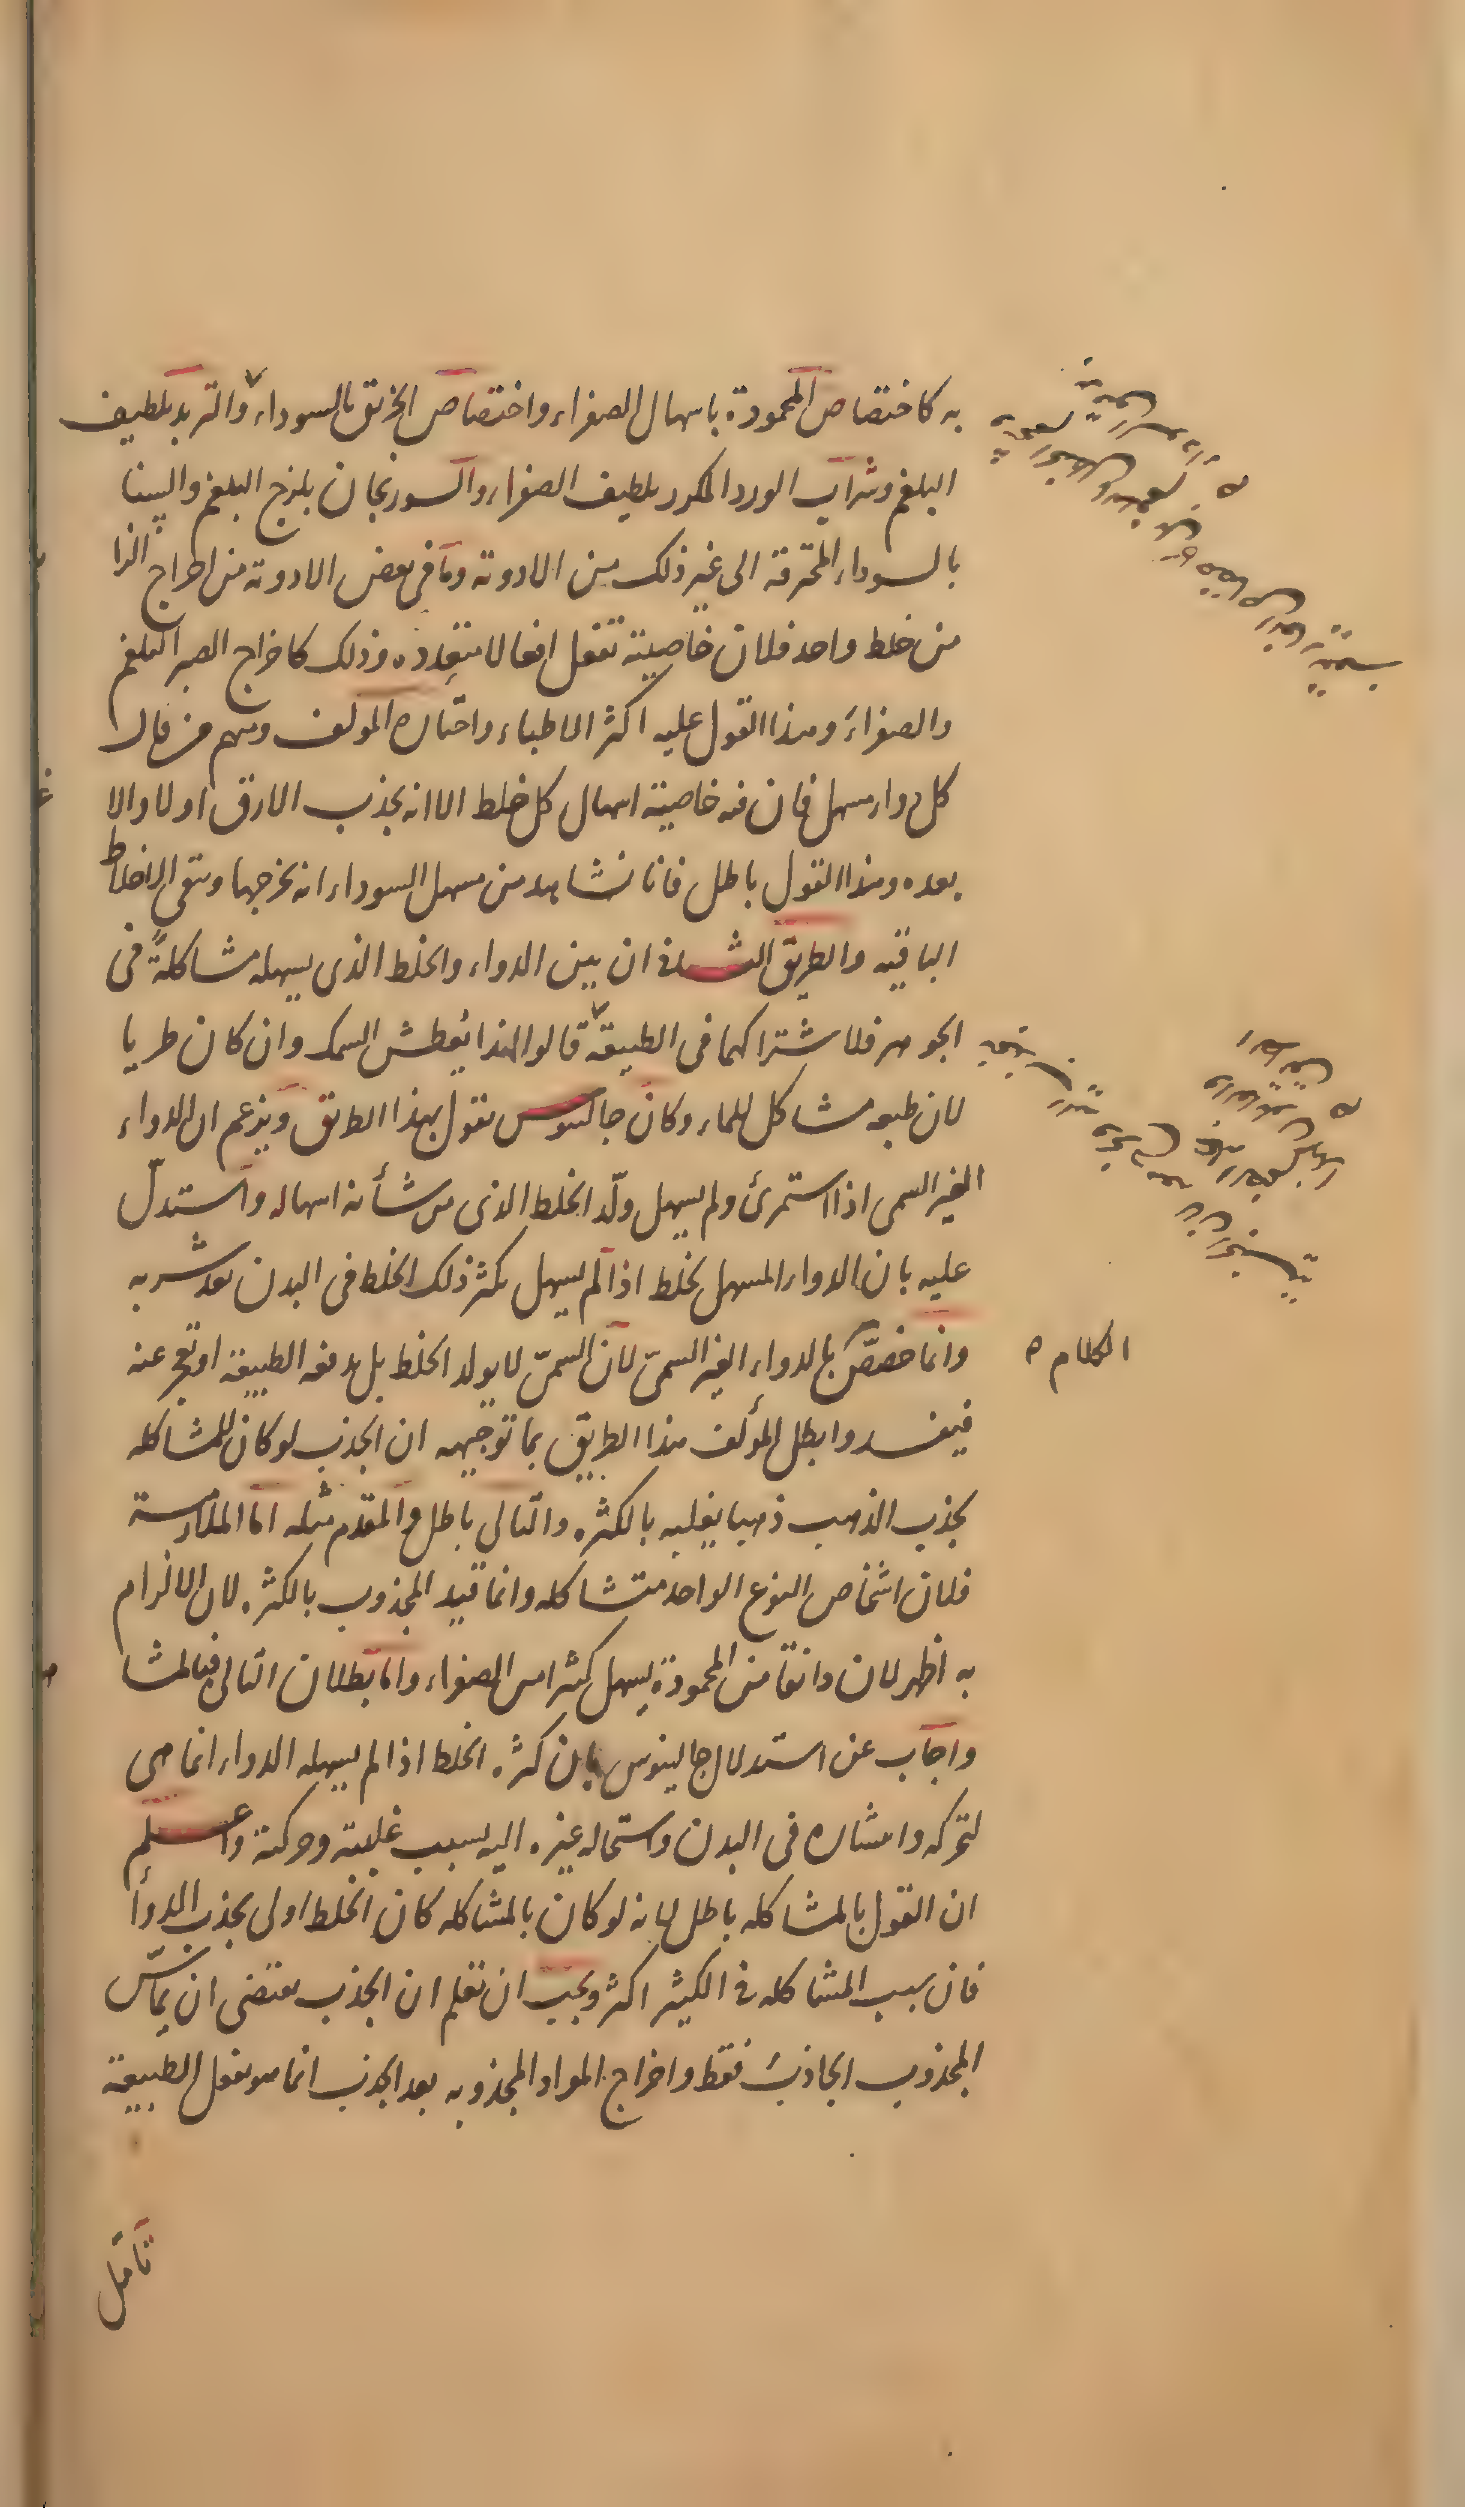 به كاختصاص المحمودة باسهال الصفراء واختصاص الخربق بالسوداء والتربد بلطيف
البلغم وشراب الورد المكرر بلطيف الصفراء والسورنجان بلزج البلغم والسنا
بالسوداء المحترقة الى غير ذلك من الادوية وما فى بعض الادوية من اخراج الزا
من خلط واحد فلان خاصيته تفعل افعالا متعدده وذلك كاخراج الصبر البلغم
والصفراء وهذا القول عليه اكثر الاطباء واختاره المولف ومنهم من قال
كل دواء مسهل فان فيه خاصية اسهال كل خلط الا انه يجذب الارق اولا والا
بعده وهذا القول باطل فانا نشاهد من مسهل السوداء انه يخرجها وتبقى الاخلاط
الباقيه والطريق الثانى ان بين الدواء والخلط الذى يسهله مشاكلةً فى
الجوهر فلاشتراكهما فى الطبيعة قالوا لهذا يُعطش السمك وان كان طريا
لان طبعه مشاكل للماء وكان جالينوس يقول بهذا الطريق ويزعم ان الدواء
الغير السمى اذا استمرئ ولم يسهل ولّد الخلط الذى من شأنه اسهاله واستدلّ
عليه بان الدواء المسهل لخلط اذا لم يسهل يكثر ذلك الخلط فى البدن بعد شربه
وانما خصصّ بالدواء الغير السمىّ لان السمىّ لا يولد الخلط بل يدفعه الطبيعة او تعجز عنه
الكلام ه
فيفسد وابطل المؤلف هذا الطريق بما توجيهه ان الجذب لو كان للمشاكله
يجذب الذهب ذهبا يغلبه بالكثره والتالى باطل والمقدم مثله اما الملازمة
فلان اشخاص النوع الواحد متشاكله وانما قيد المجذوب بالكثره لان الالزام
به اظهر لان دانقا من المحمودة يسهل كثيرا من الصفراء واما بطلان التالى فبالمشا
واجاب عن استدلال جالينوس بان كثره الخلط اذا لم يسهله الدواء انما هى
لتحركه وانتشاره فى البدن واستحاله غيره اليه بسبب غلبته وحركته واعلم
ان القول بالمشاكله باطل لانه لو كان بالمشاكله كان الخلط اولى بجذب الدوأ
فان سبب المشاكله فى الكثير اكثر ويجب ان تعلم ان الجذب يقتضى ان يماسّ
المجذوب الجاذبَ فقط واخراج المواد المجذوبه بعد الجذب انما هو بفعل الطبيعة
تأمل